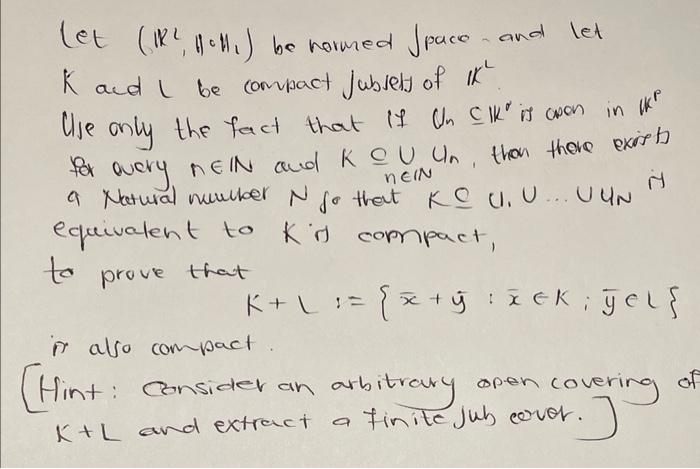 Let (ℝ², ||∘||₁) be normed space and let
K and L be compact subsets of ℝ²
Use only the fact that if Un ⊆ ℝᵖ is open in ℝᵖ
for every n∈ℕ and K ⊆ ∪ Un, then there exists
n∈ℕ
a Natural number N so that K ⊆ U₁ ∪ ... ∪ UN is
equivalent to K is compact,
to prove that
K + L := { x̄ + ȳ : x̄ ∈ K ; ȳ ∈ L }
is also compact.
[Hint: Consider an arbitrary open covering of
K+L and extract a finite sub cover.]